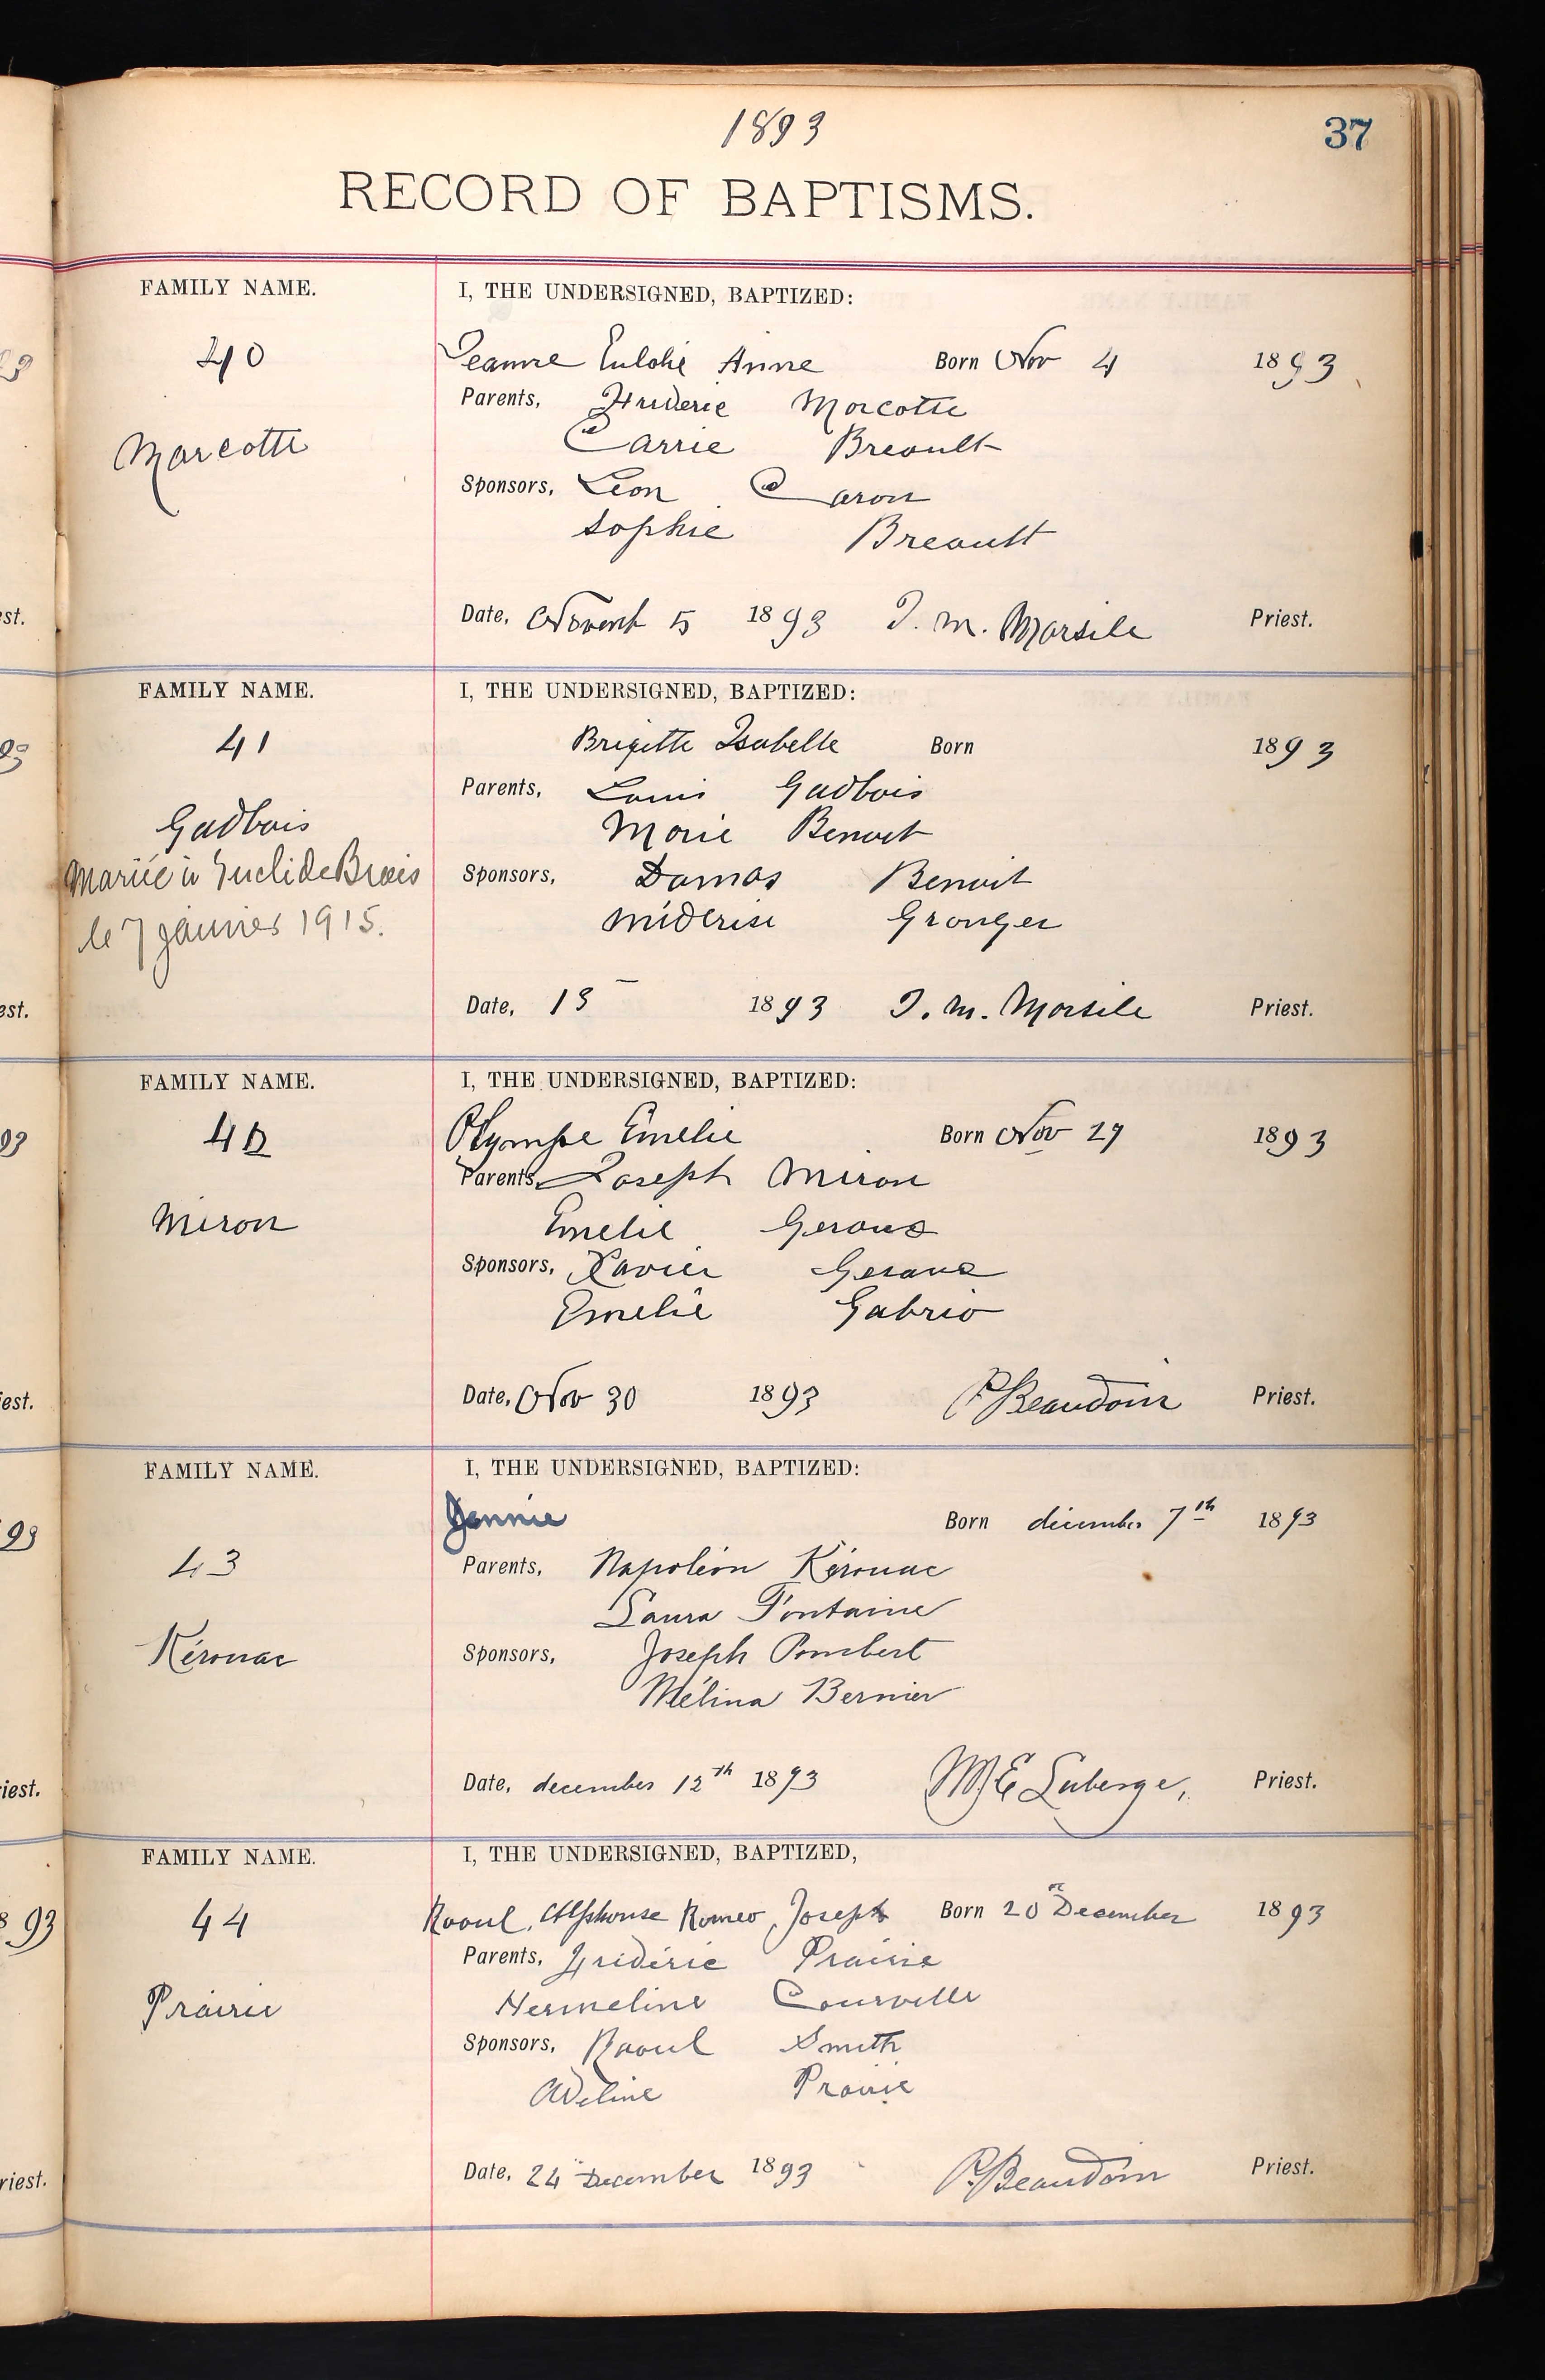 1893
37
RECORD OF BAPTISMS.
FAMILY NAME.
I, THE UNDERSIGNED, BAPTIZED:
40
Jeanne Eulalie Anne Born Nov 4 1893
Parents, Frideric Marcotte
Marcotte
Carrie Breault
Sponsors, Léon Caron
Sophie Breault
Date, Novemb 5 1893 T. M. Marsile Priest.
FAMILY NAME.
I, THE UNDERSIGNED, BAPTIZED:
41
Brigitte Isabelle Born 1893
Parents, Louis Gadbois
Gadbois
Marie Benoit
Mariée à Euclide Brais
Sponsors, Damas Benoit
le 7 janvier 1915.
Miderise Granger
Date, 13 1893 T. M. Marsile Priest.
FAMILY NAME.
I, THE UNDERSIGNED, BAPTIZED:
42
Olympe Emelie Born Nov 29 1893
Parents, Joseph Miron
Miron
Emelie Geroux
Sponsors, Xavier
Emelie Gabrio
Date, Nov 30 1893 P. Beaudoin Priest.
FAMILY NAME.
I, THE UNDERSIGNED, BAPTIZED:
Jennie Born décember 7th 1893
43
Parents, Napoléon Kérouac
Laura Fontaine
Kérouac
Sponsors, Joseph Pombert
Mélina Bernier
Date, december 12th 1893 M E Laberge, Priest.
FAMILY NAME.
I, THE UNDERSIGNED, BAPTIZED,
44
Raoul, Alphonse Romeo, Joseph Born 20 December 1893
Parents, Fridéric Prairie
Prairie
Hermeline Courville
Sponsors, Raoul Smith
Adeline Prairie
Date, 24 December 1893 P. Beaudoin Priest.